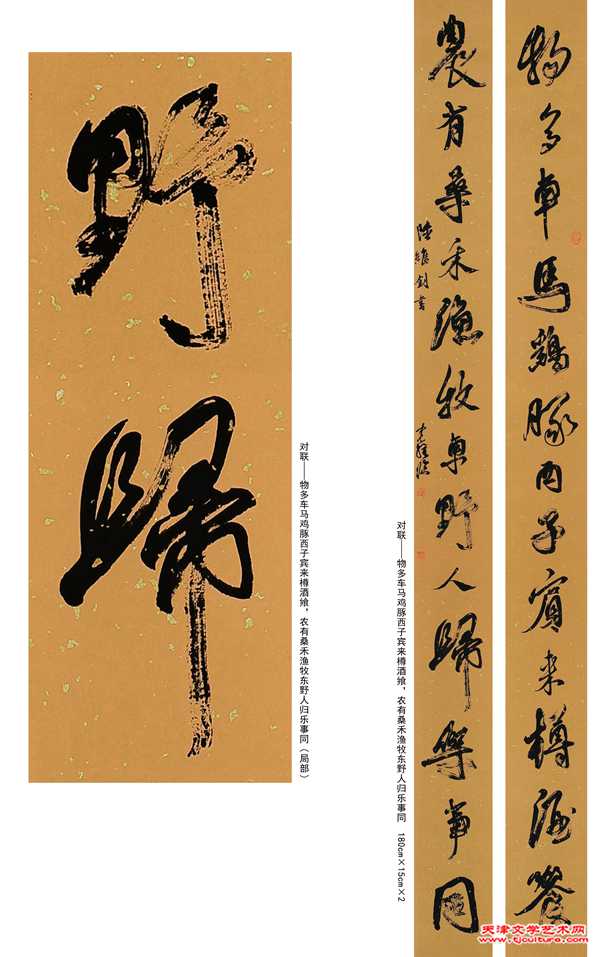 物多車馬鷄豚西子賓來樽酒飧
農有桑禾漁牧東野人歸樂事同
陸維釗書
野歸
对联——物多车马鸡豚西子宾来樽酒飧，农有桑禾渔牧东野人归乐事同（局部）
对联——物多车马鸡豚西子宾来樽酒飧，农有桑禾渔牧东野人归乐事同 180cm×15cm×2
天津文学艺术网
www.tjculture.com